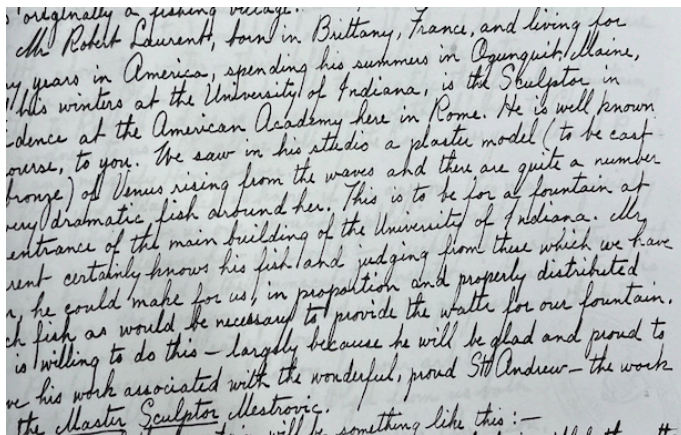 originally a fishing village.
Mr Robert Laurent, born in Brittany, France, and living for
years in America, spending his summers in Ogunquit, Maine,
his winters at the University of Indiana, is the Sculptor in
idence at the American Academy here in Rome. He is well known
ourse, to you. We saw in his studio a plaster model (to be cast
bronze) of Venus rising from the waves and there are quite a number
very dramatic fish around her. This is to be for a fountain at
entrance of the main building of the University of Indiana. Mr
rent certainly knows his fish and judging from these which we have
n, he could make for us, in proportion and properly distributed
ch fish as would be necessary to provide the water for our fountain.
is willing to do this – largely because he will be glad and proud to
ve his work associated with the wonderful, proud St Andrew – the work
the Master Sculptor Mestrovic.
will be something like this:–